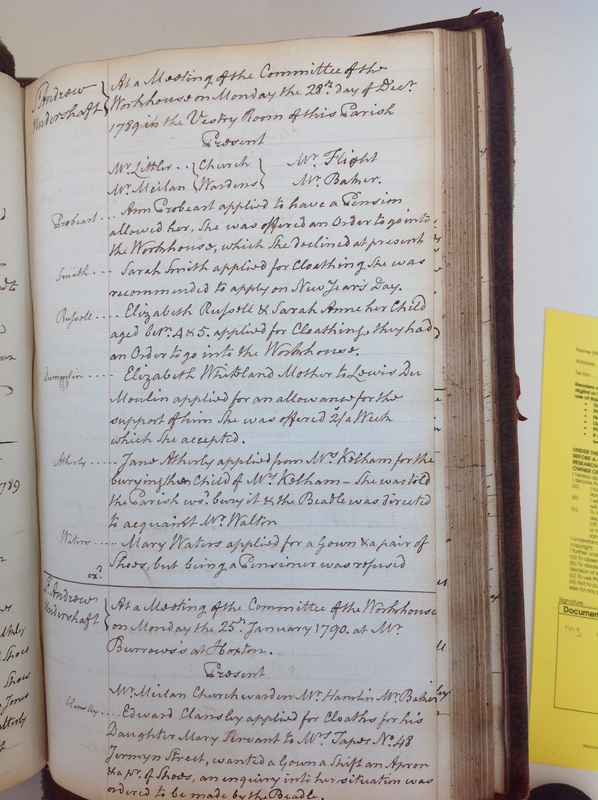 St. Andrew
Undershaft
At a Meeting of the Committee of the
Workhouse on Monday the 28th. day of Decr.
1789 in the Vestry Room of this Parish
Present
Mr. Littler .. Church Mr. Flight
Mr. Meilan Wardens Mr. Baker.
Probeart ... Ann Probeart applied to have a Pension
allowed her, She was offered an Order to go into
the Workhouse, which She declined at present
Smith .... Sarah Smith applied for Cloathing She was
recommended to apply on New Year's Day.
Russell .... Elizabeth Russell & Sarah Anne her Child
aged betn. 4 & 5. applied for Cloathing, they had
an Order to go into the Workhouse.
Dumoulin .... Elizabeth Whiteland Mother to Lewis Du
Moulin applied for an allowance for the
support of him She was offered 2/ a Week
which She accepted.
Atherly ..... Jane Atherly applied from Mrs. Kelham for the
burying the Child of Mrs. Kelham - She was told
the Parish wd. bury it & the Beadle was directed
to acquaint Mr. Walton
Waters ..... Mary Waters applied for a Gown & a pair of
Shoes, but being a Pensioner was refused
exd.
St. Andrew
Undershaft
At a Meeting of the Committee of the Workhouse
on Monday the 25th. January 1790. at Mr.
Burrows's at Hoxton.
Present
Mr. Meilan Churchwarden Mr. Hamlin Mr. Baker
Clansby .... Edward Clansby applied for Cloaths for his
Daughter Mary Servant to Mrs. Tapes No. 48
Jermyn Street, wanted a Gown a Shift an Apron
& a pr. of Shoes, an enquiry into her situation was
ordered to be made by the Beadle.
1789
Shoes
Jones
Signature
Documen
MS